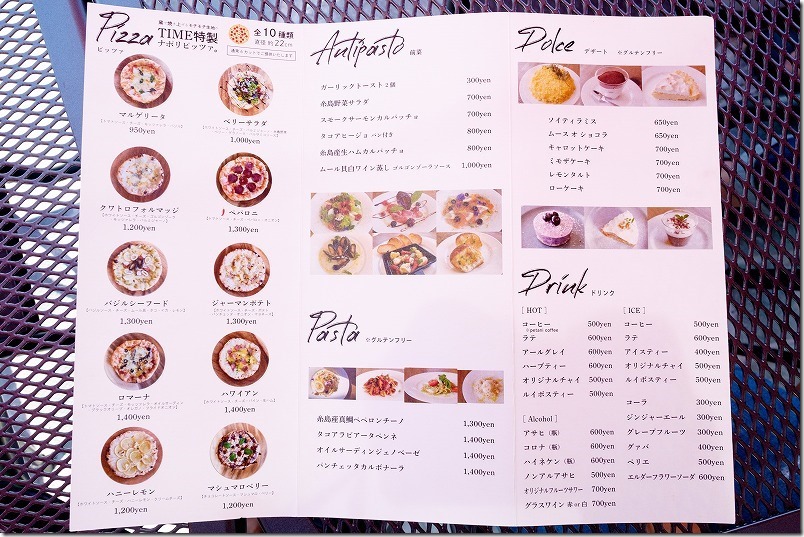 Pizza
ピッツァ
TIME特製
ナポリピッツァ。
全10種類
直径約22cm
マルゲリータ
950yen
ベリーサラダ
1,000yen
クワトロフォルマッジ
1,200yen
ペパロニ
1,300yen
バジルシーフード
1,300yen
ジャーマンポテト
1,300yen
ロマーナ
1,400yen
ハワイアン
1,400yen
ハニーレモン
1,200yen
マシュマロベリー
1,200yen
Antipasto 前菜
ガーリックトースト2個 300yen
糸島野菜サラダ 700yen
スモークサーモンカルパッチョ 700yen
タコアヒージョ パン付き 800yen
糸島産生ハムカルパッチョ 800yen
ムール貝白ワイン蒸し ゴルゴンゾーラソース 1,000yen
Pasta ☆グルテンフリー
糸島産真鯛ペペロンチーノ 1,300yen
タコアラビアータペンネ 1,400yen
オイルサーディンジェノベーゼ 1,400yen
パンチェッタカルボナーラ 1,400yen
Dolce デザート ☆グルテンフリー
ソイティラミス 650yen
ムース オ ショコラ 650yen
キャロットケーキ 700yen
ミモザケーキ 700yen
レモンタルト 700yen
ローケーキ 700yen
Drink ドリンク
[ HOT ]
コーヒー 500yen
©petani coffee
ラテ 600yen
アールグレイ 600yen
ハーブティー 600yen
オリジナルチャイ 500yen
ルイボスティー 500yen
[ Alcohol ]
アサヒ（瓶） 600yen
コロナ（瓶） 600yen
ハイネケン（瓶） 600yen
ノンアルアサヒ 500yen
オリジナルフルーツサワー 700yen
グラスワイン 赤 or 白 700yen
[ ICE ]
コーヒー 500yen
ラテ 600yen
アイスティー 400yen
オリジナルチャイ 500yen
ルイボスティー 500yen
コーラ 300yen
ジンジャーエール 300yen
グレープフルーツ 300yen
グァバ 400yen
ペリエ 500yen
エルダーフラワーソーダ 600yen